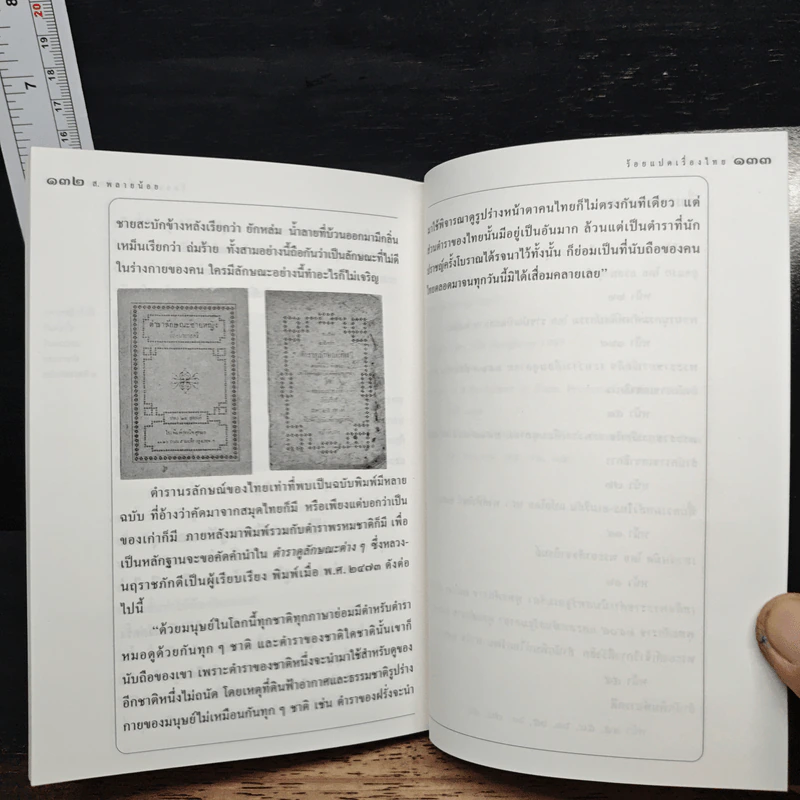 ๑๓๒ ส. พลายน้อย
ชายสะบักข้างหลังเรียกว่า ยักหล่ม น้ำลายที่บ้วนออกมามีกลิ่น
เหม็นเรียกว่า ถ่มร้าย ทั้งสามอย่างนี้ถือกันว่าเป็นลักษณะที่ไม่ดี
ในร่างกายของคน ใครมีลักษณะอย่างนี้ทำอะไรก็ไม่เจริญ
ตำราลักษณะชายหญิง
ตำรานรลักษณ์ของไทยเท่าที่พบเป็นฉบับพิมพ์มีหลาย
ฉบับ ที่อ้างว่าคัดมาจากสมุดไทยก็มี หรือเพียงแต่บอกว่าเป็น
ของเก่าก็มี ภายหลังมาพิมพ์รวมกับตำราพรหมชาติก็มี เพื่อ
เป็นหลักฐานจะขอคัดคำนำใน ตำราดูลักษณะต่าง ๆ ซึ่งหลวง-
นฤราชภักดีเป็นผู้เรียบเรียง พิมพ์เมื่อ พ.ศ. ๒๔๗๓ ดังต่อ
ไปนี้
“ด้วยมนุษย์ในโลกนี้ทุกชาติทุกภาษาย่อมมีตำหรับตำรา
หมอดูด้วยกันทุก ๆ ชาติ และตำราของชาติใดชาตินั้นเขาก็
นับถือของเขา เพราะตำราของชาติหนึ่งจะนำมาใช้สำหรับดูของ
อีกชาติหนึ่งไม่ถนัด โดยเหตุที่ดินฟ้าอากาศและธรรมชาติรูปร่าง
กายของมนุษย์ไม่เหมือนกันทุก ๆ ชาติ เช่น ตำราของฝรั่งจะนำ
ร้อยแปดเรื่องไทย ๑๓๓
มาใช้พิจารณาดูรูปร่างหน้าตาคนไทยก็ไม่ตรงกันทีเดียว แต่
ส่วนตำราของไทยนั้นมีอยู่เป็นอันมาก ล้วนแต่เป็นตำราที่นัก
ปราชญ์ครั้งโบราณได้รจนาไว้ทั้งนั้น ก็ย่อมเป็นที่นับถือของคน
ไทยตลอดมาจนทุกวันนี้มิได้เสื่อมคลายเลย”